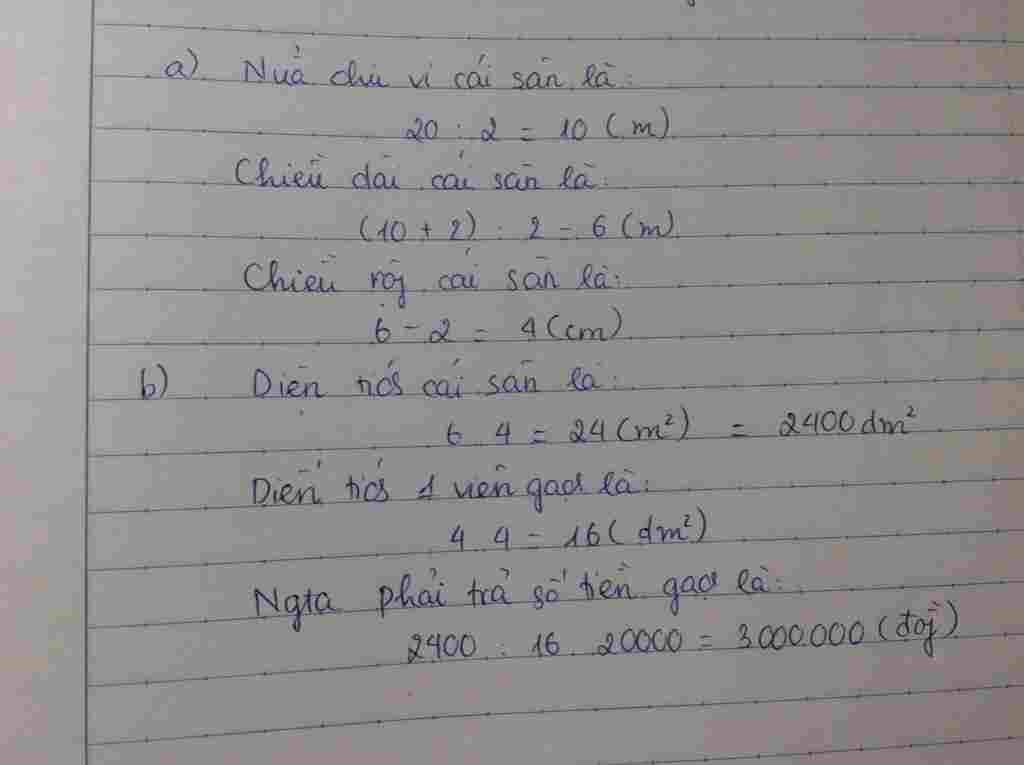 a) Nửa chu vi cái sân là:
20 : 2 = 10 (m)
Chiều dài cái sân là:
(10 + 2) : 2 = 6 (m)
Chiều rộj cái sân là:
6 - 2 = 4 (cm)
b) Diện tícs cái sân là:
6 . 4 = 24 (m²) = 2400 dm²
Diện tícs 1 viên gạcs là:
4 . 4 = 16 (dm²)
Ngta phải trả số tiền gạcs là:
2400 : 16 . 20000 = 3000.000 (đồj)